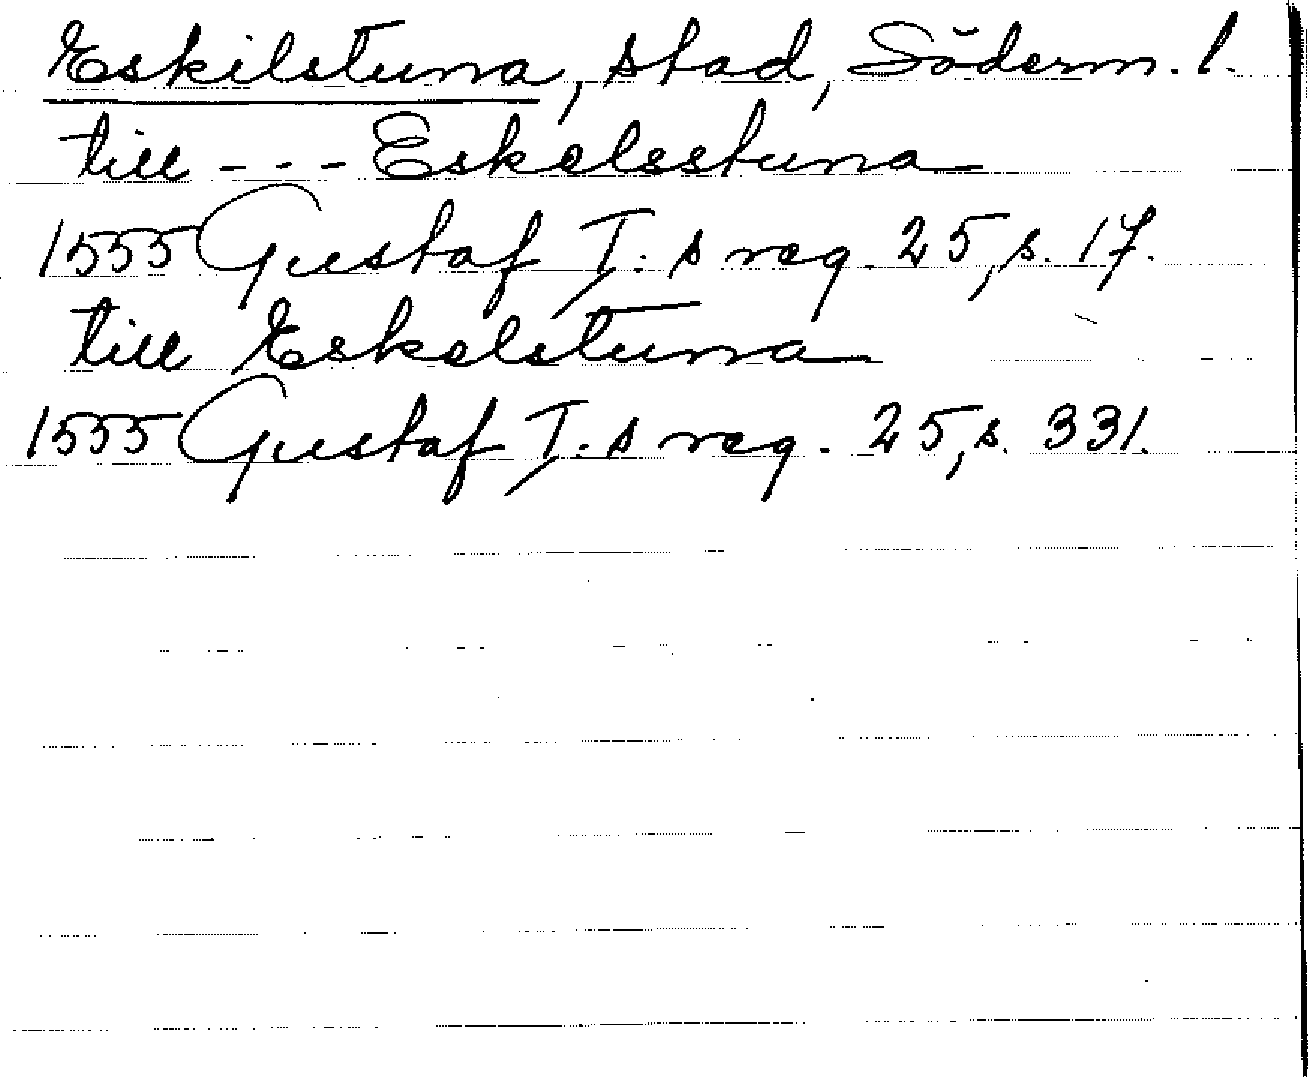 Eskilstuna, stad, Söderm. l.
till - - - Eskelsstuna
1555 Gustaf I:s reg. 25, s. 17.
till Eskelstuna
1555 Gustaf I:s reg. 25, s. 331.